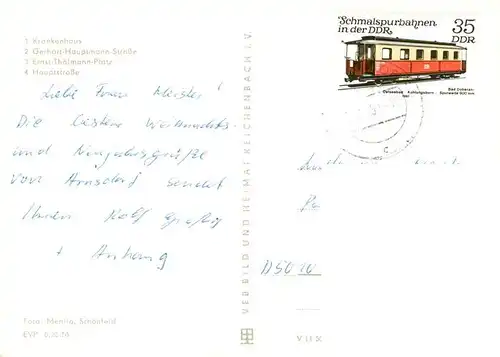 1 Krankenhaus
2 Gerhart-Hauptmann-Straße
3 Ernst-Thälmann-Platz
4 Hauptstraße
Liebe Frau Meister!
Die besten Weihnachts-
und Neujahrsgrüße
von Arnsdorf sendet
Ihnen Rolf
+ Anhang
Foto: Schönfeld
EVP 0,20 M
VEB BILD UND HEIMAT REICHENBACH I. V.
Schmalspurbahnen
in der DDR
35
DDR
Bad Doberan-
Ostseebad Kühlungsborn Spurweite 900 mm
D5020
V 11 X